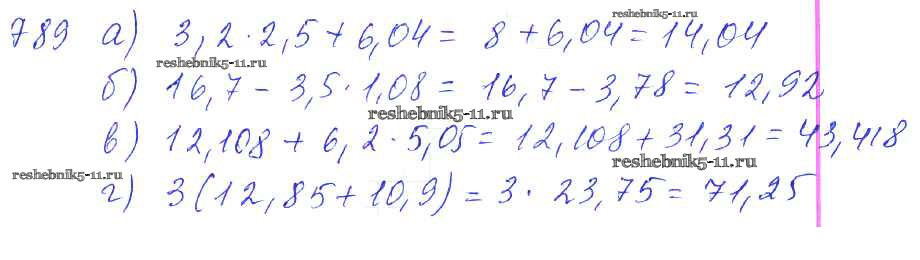 reshebnik5-11.ru
789 а) 3,2 · 2,5 + 6,04 = 8 + 6,04 = 14,04
reshebnik5-11.ru
б) 16,7 − 3,5 · 1,08 = 16,7 − 3,78 = 12,92
reshebnik5-11.ru
в) 12,108 + 6,2 · 5,05 = 12,108 + 31,31 = 43,418
reshebnik5-11.ru
reshebnik5-11.ru
г) 3(12,85 + 10,9) = 3 · 23,75 = 71,25